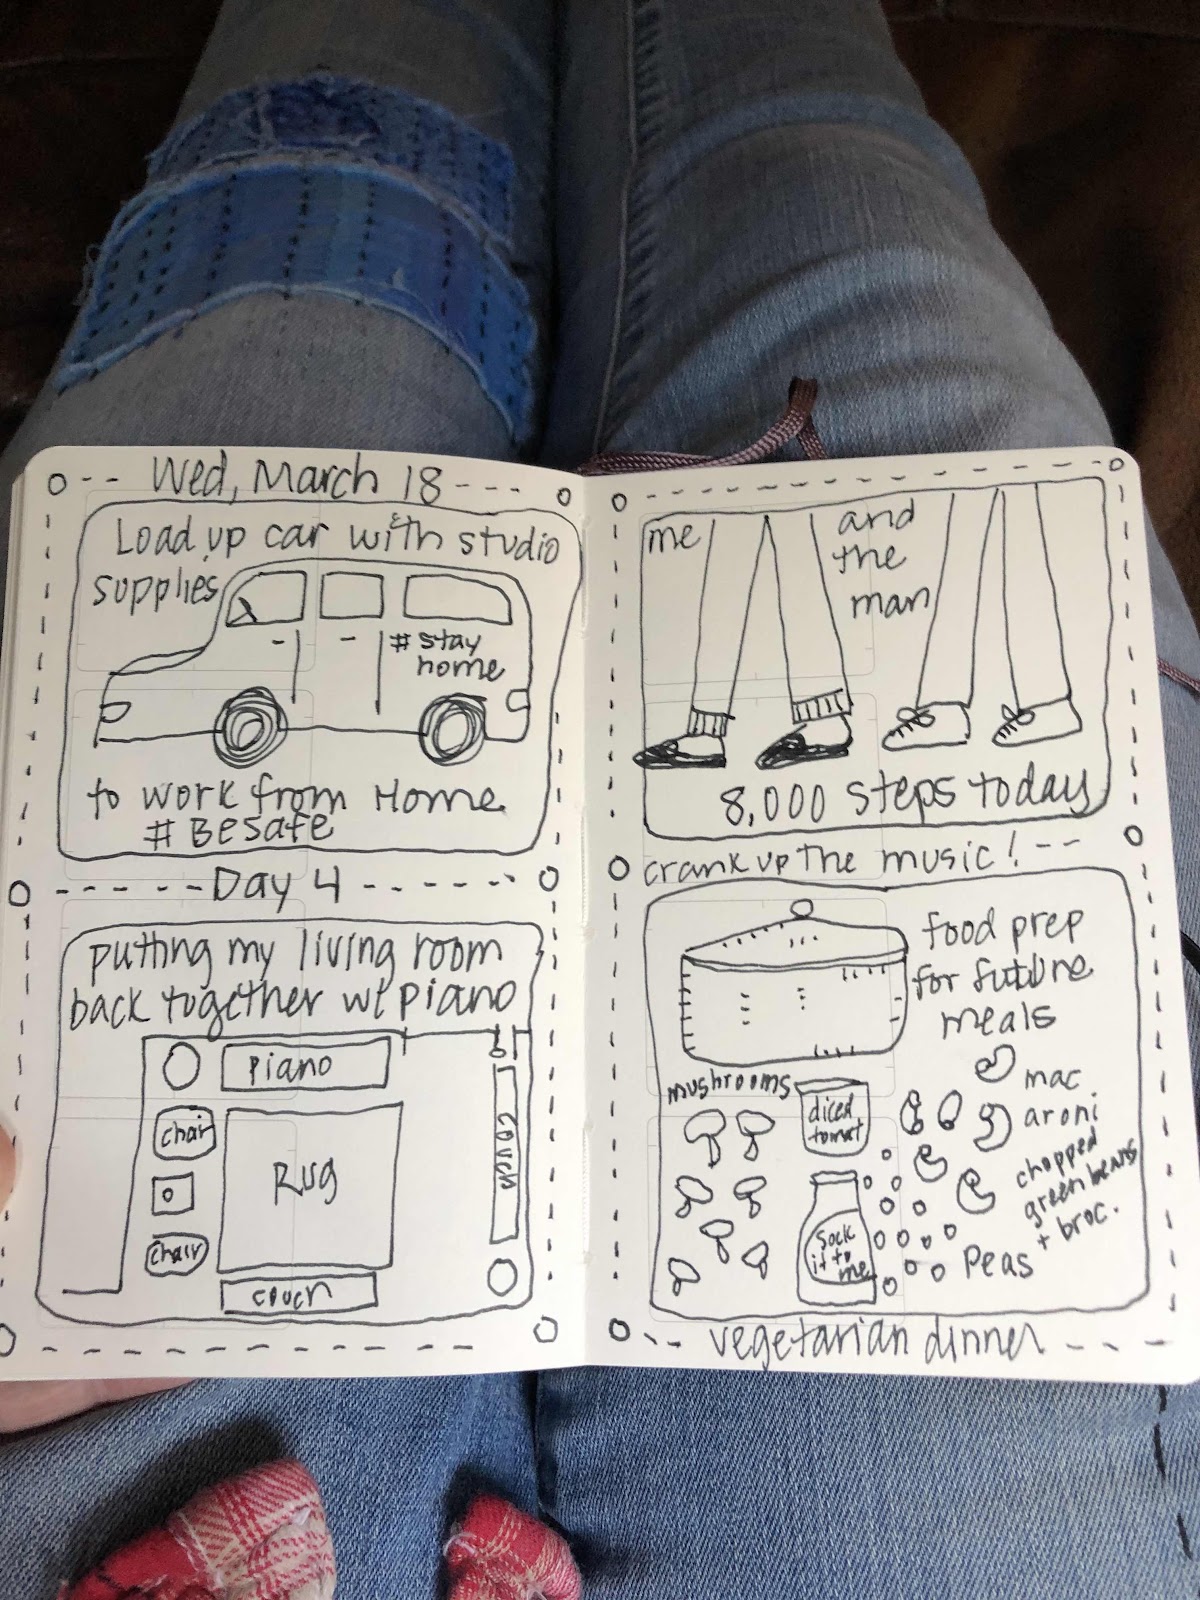 Wed, March 18
Load up car with studio
supplies
# stay
home
to work from Home
# BeSafe
Day 4
putting my living room
back together w/ piano
piano
chair
Rug
couch
chair
couch
me
and
the
man
8,000 steps today
crank up the music!
food prep
for future
meals
mushrooms
diced
tomat
mac
aroni
chopped
green beans
+ broc.
Sock
it to
me
Peas
vegetarian dinner